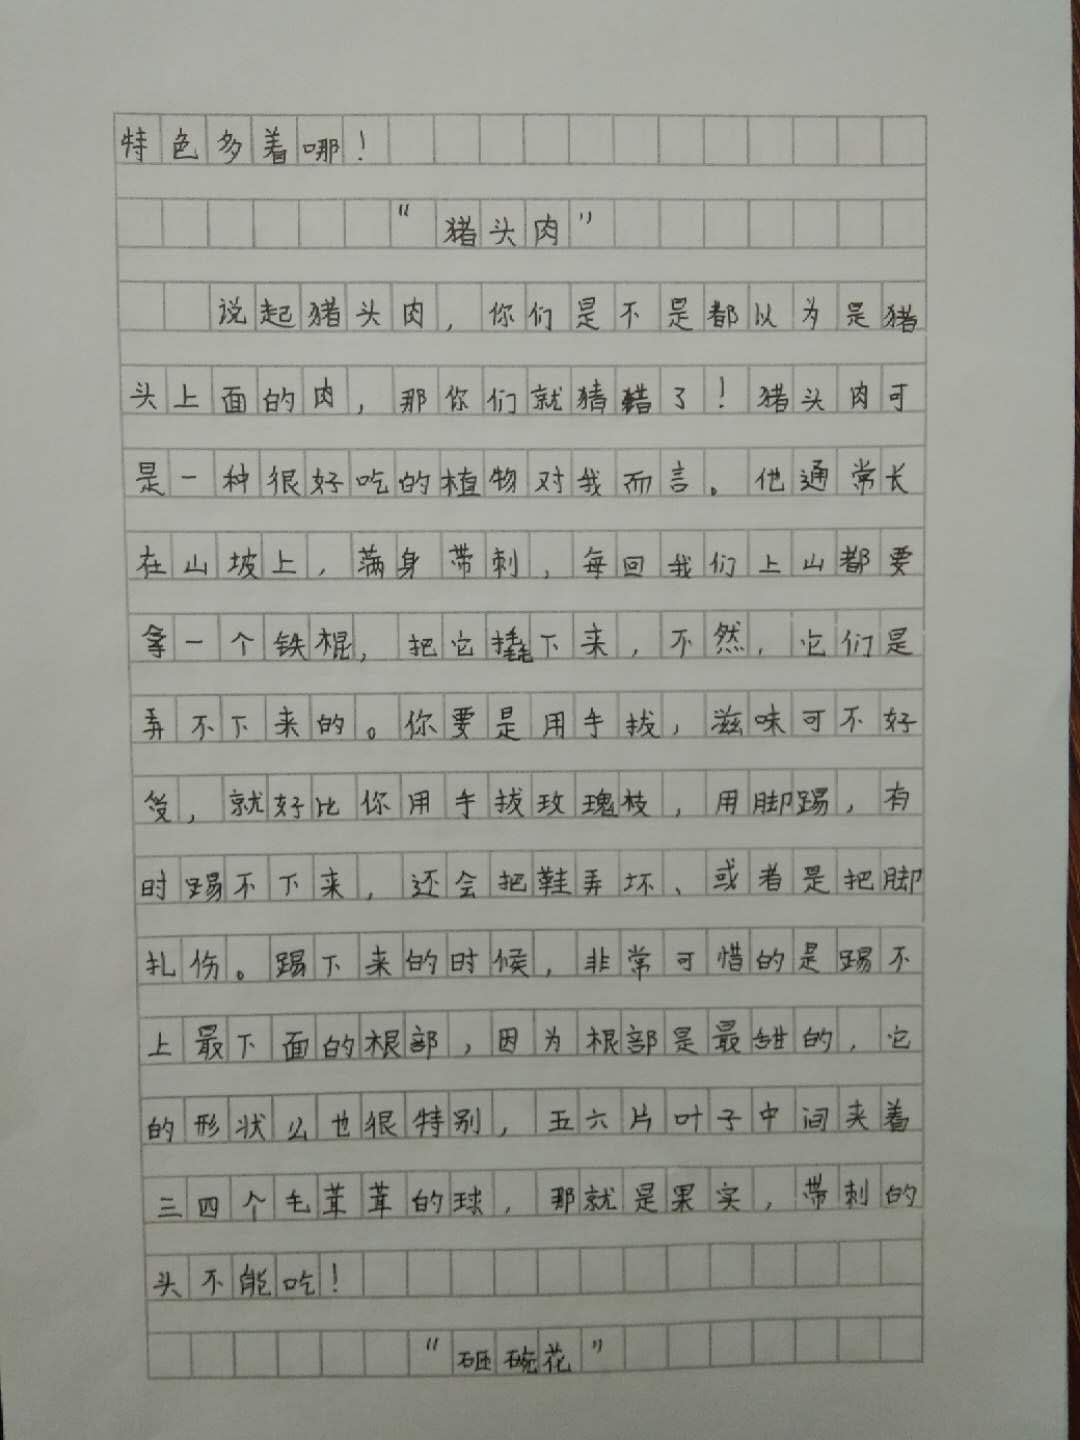 特色多着哪！
“猪头肉”
说起猪头肉，你们是不是都以为是猪
头上面的肉，那你们就猪错了！猪头肉可
是一种很好吃的植物对我而言。他通常长
在山坡上，满身带刺，每回我们上山都要
拿一个铁棍，把它撬下来，不然，它们是
弄不下来的。你要是用手拔，滋味可不好
受，就好比你用手拔玫瑰枝，用脚踢，有
时踢不下来，还会把鞋弄坏、或者是把脚
扎伤。踢下来的时候，非常可惜的是踢不
上最下面的根部，因为根部是最甜的，它
的形状么也很特别，五六片叶子中间夹着
三四个毛茸茸的球，那就是果实，带刺的
头不能吃！
“砸碗花”